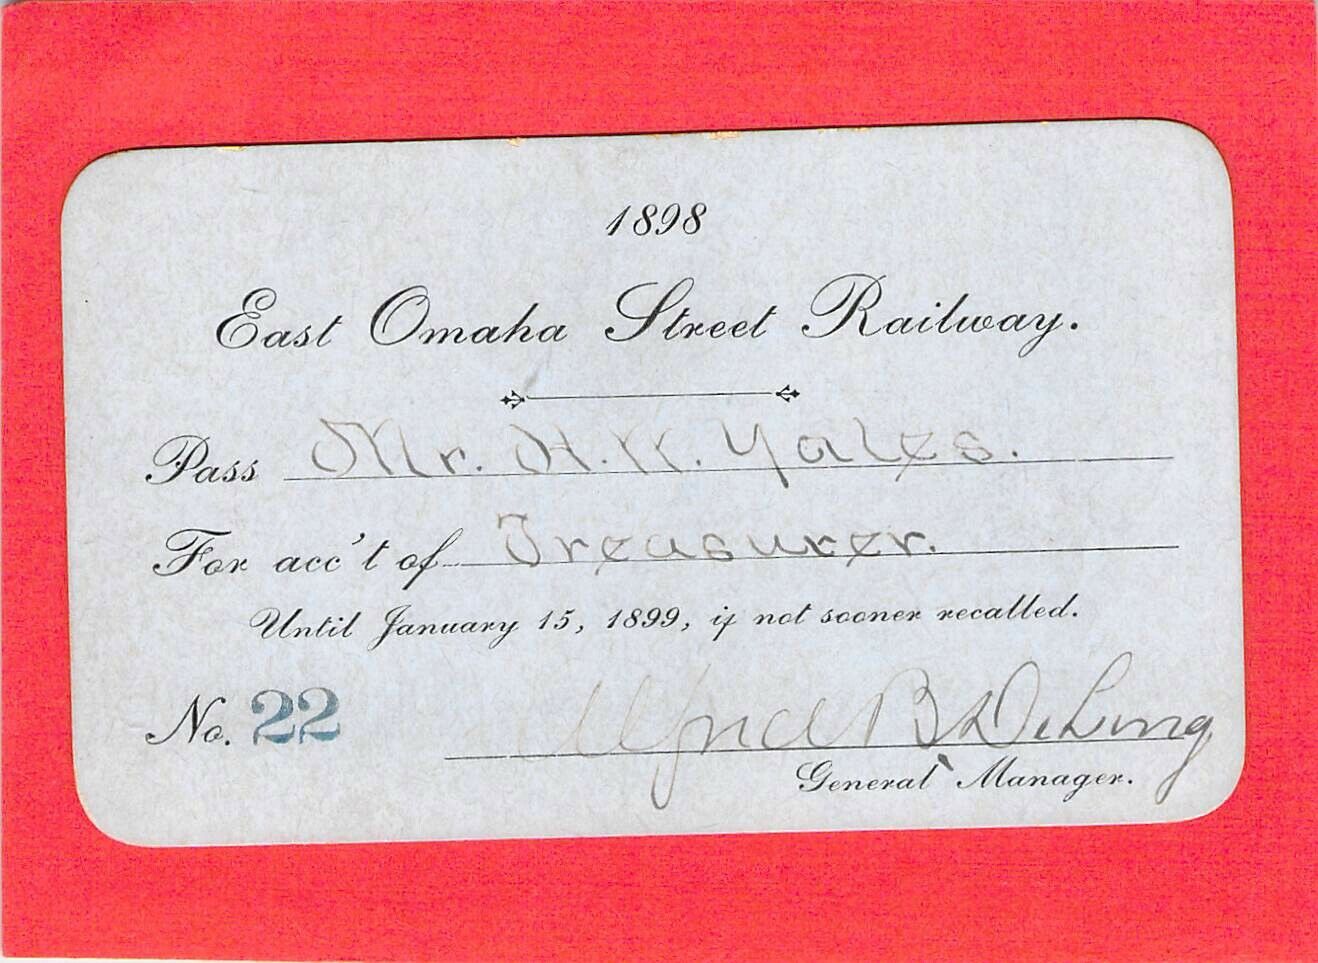 1898
East Omaha Street Railway.
Pass Mr. H. W. Yates.
For acc't of Treasurer.
Until January 15, 1899, if not sooner recalled.
No. 22
Alfred B DeLong
General Manager.